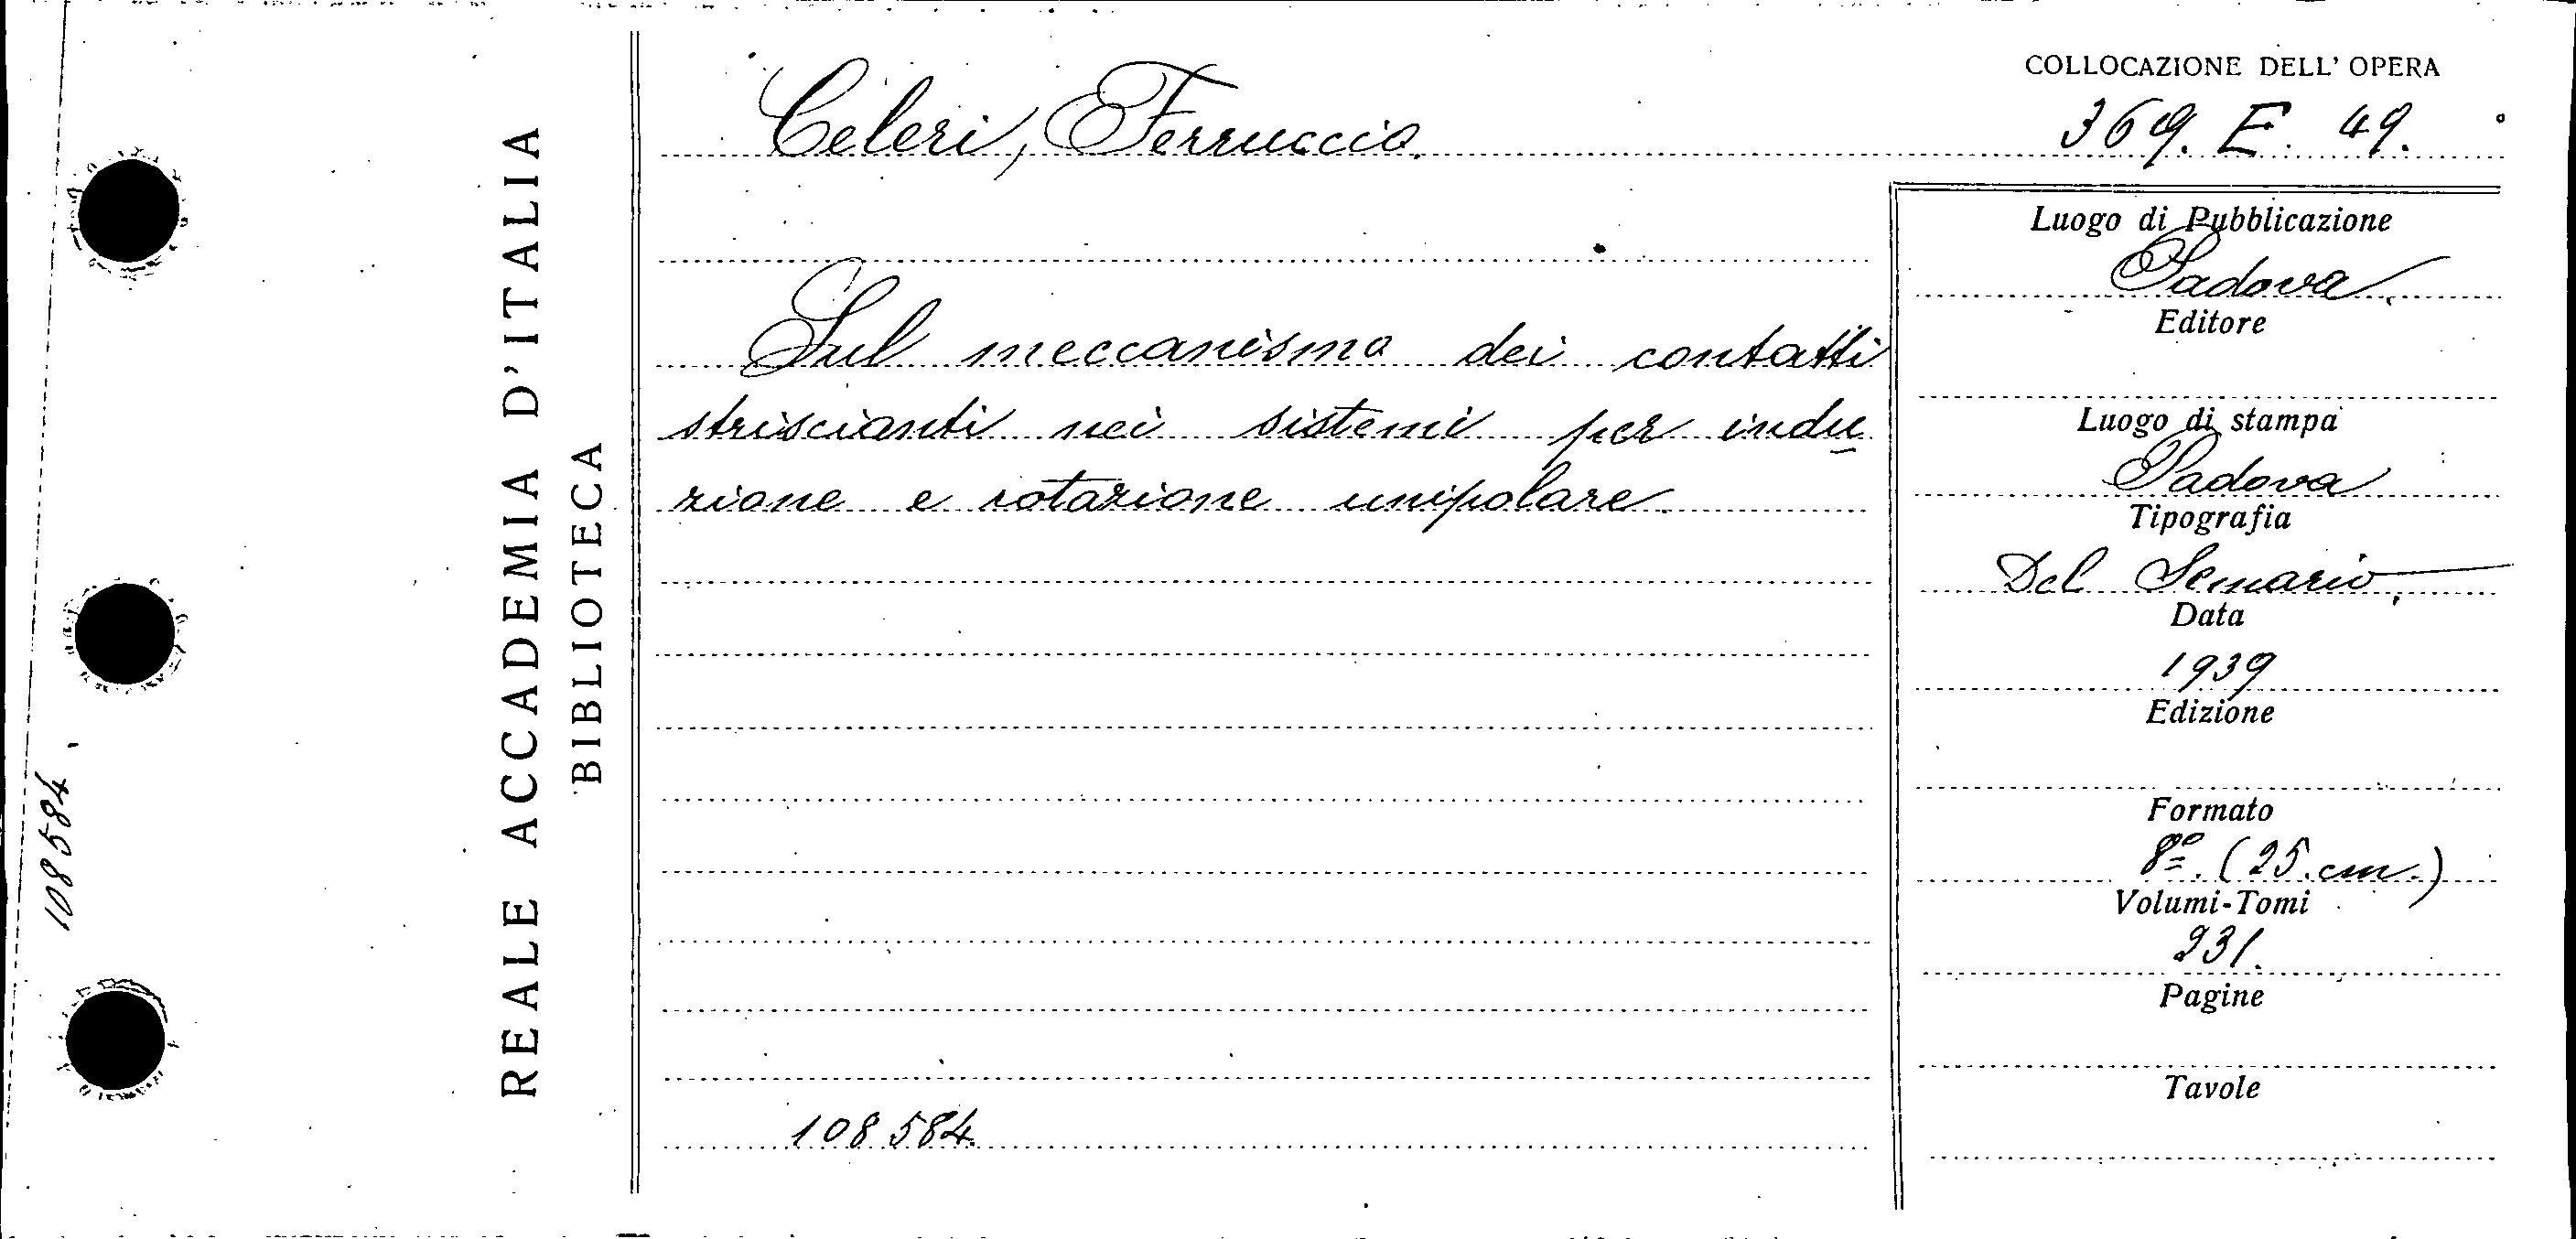 COLLOCAZIONE DELL' OPERA
Celeri, Ferruccio.
369. E. 49.
Sul meccanismo dei contatti
striscianti nei sistemi per indu
zione e rotazione unipolare.
108584.
Luogo di Pubblicazione
Padova.
Editore
Luogo di stampa
Padova
Tipografia
Del Semario.
Data
1939
Edizione
Formato
8º. (25. cm.)
Volumi-Tomi
231.
Pagine
Tavole
REALE ACCADEMIA D'ITALIA
BIBLIOTECA
108584.